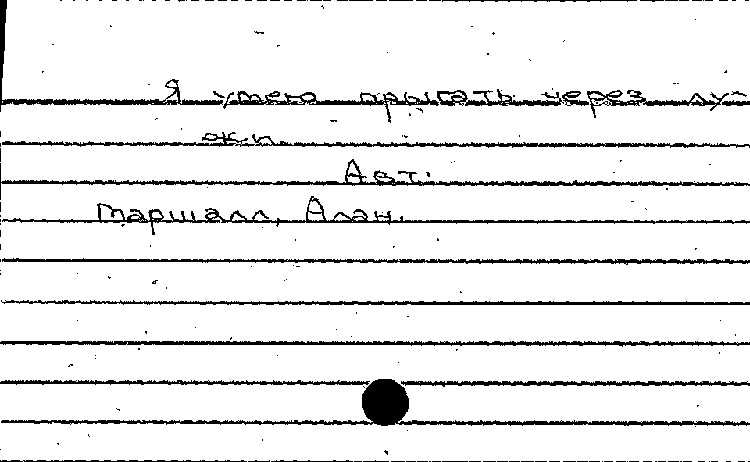 Я умею прыгать через лу-
жи.
Авт.
Маршалл, Алан.